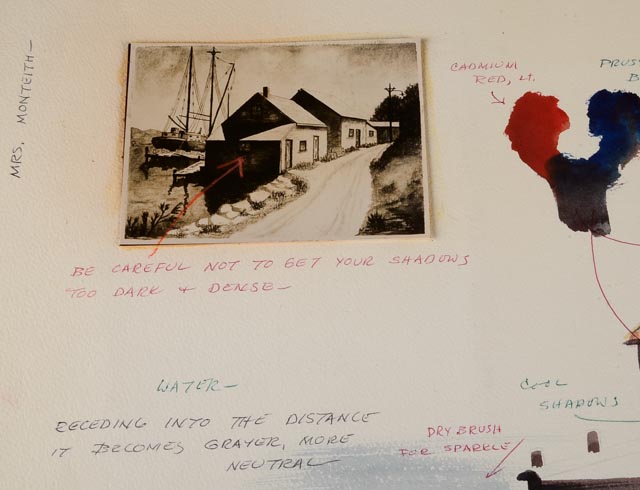 MRS. MONTEITH—
CADMIUM
RED, LT.
BE CAREFUL NOT TO GET YOUR SHADOWS
TOO DARK & DENSE—
WATER—
RECEDING INTO THE DISTANCE
IT BECOMES GRAYER, MORE
NEUTRAL
COOL
SHADOWS
DRY BRUSH
FOR SPARKLE